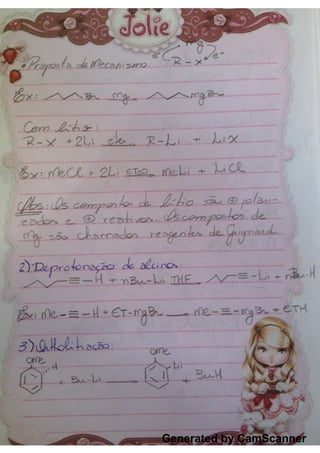 Jolie
• Proposta de Mecanismo: R-X Mg e- e-
Ex: Br Mg MgBr
Com lítio:
R-X + 2Li éter R-Li + LiX
Ex: MeCl + 2Li ETOEt MeLi + LiCl
Obs: Os compostos de lítio são ⊕ polari-
zados e ⊕ reativos. Os compostos de
Mg são chamados reagentes de Grignard
2) Deprotonação de alcinos
≡-H + nBu-Li THF ≡-Li + nBu-H
Ex: Me-≡-H + ET-MgBr Me-≡-MgBr + ETH
3) Ortholitiação:
OMe OMe
H + Bu-Li Li + BuH
Generated by CamScanner